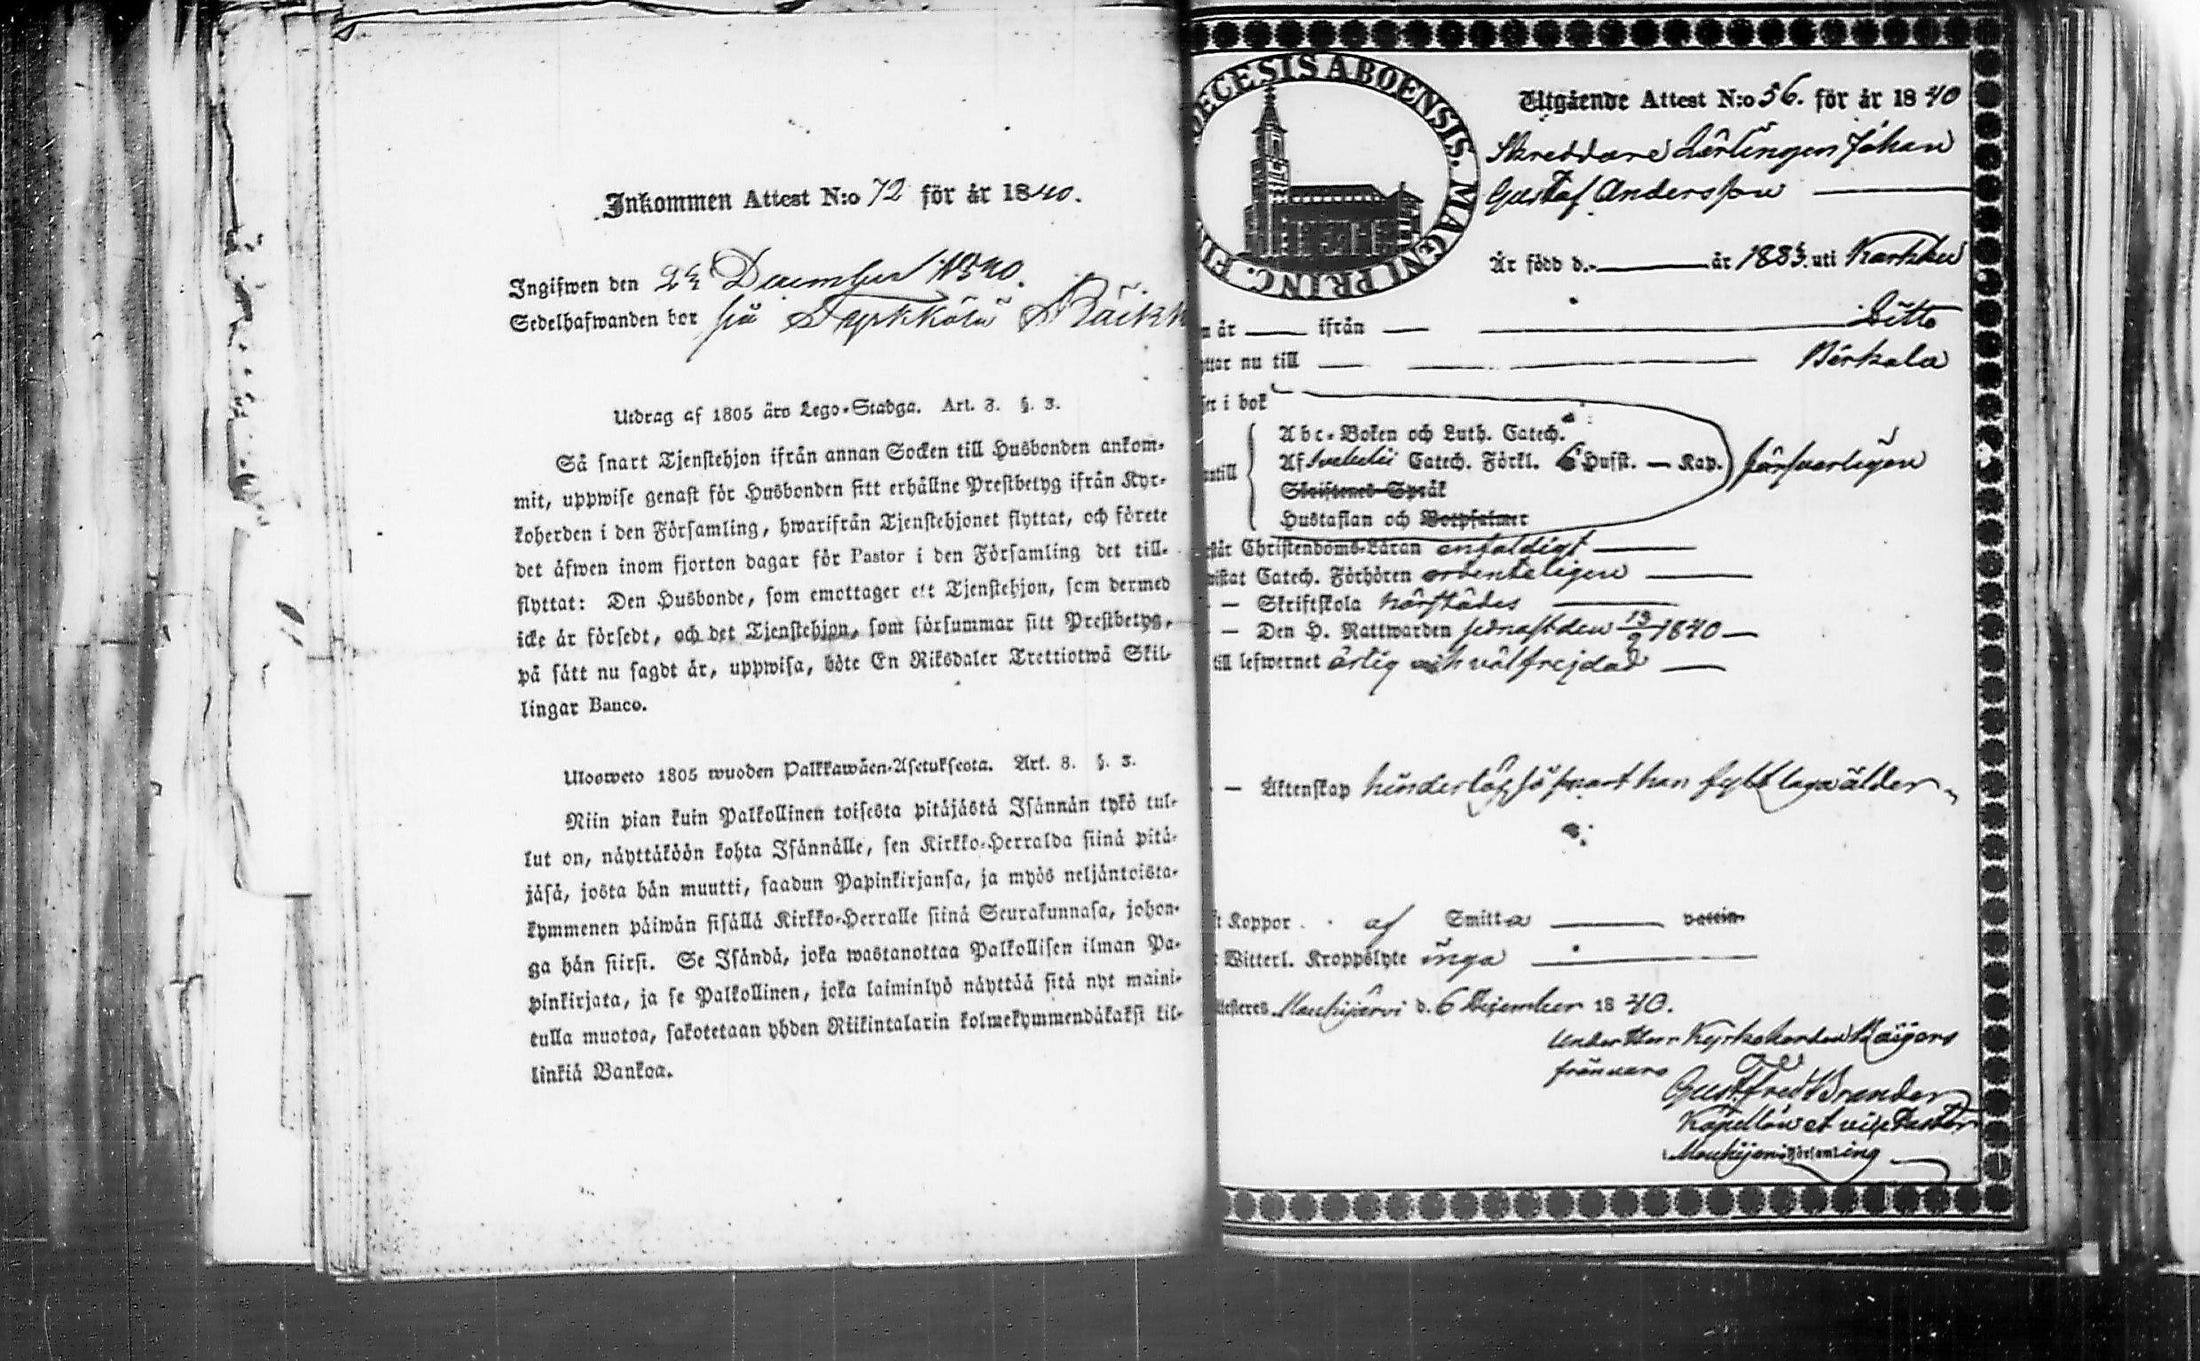 Inkommen Attest N:o 72 för år 1840.
Ingifwen den December 1840.
Sedelhafwanden bor på
Utdrag af 1805 års Lego-Stadga. Art. 8. §. 3.
Så snart Tjenstehjon ifrån annan Socken till Husbonden ankom-
mit, uppwise genast för Husbonden sitt erhållne Prestbetyg ifrån Kyr-
koherden i den Församling, hwarifrån Tjenstehjonet flyttat, och förete
det äfwen inom fjorton dagar för Pastor i den Församling det till-
flyttat: Den Husbonde, som emottager ett Tjenstehjon, som dermed
icke är försedt, och det Tjenstehjon, som försummar sitt Prestbetyg,
på sätt nu sagdt är, uppwisa, böte En Riksdaler Trettiotwå Skil-
lingar Banco.
Ulosweto 1805 wuoden Palkkawäen-Asetuksesta. Art. 8. §. 3.
Niin pian kuin Palkollinen toisesta pitäjästä Isännän tykö tul-
lut on, näyttäköön kohta Isännälle, sen Kirkko-Herralda siinä pitä-
jäsä, josta hän muutti, saadun Papinkirjansa, ja myös neljäntoista-
kymmenen päiwän sisällä Kirkko-Herralle siinä Seurakunnasa, johon-
ga hän siirsi. Se Isändä, joka wastanottaa Palkollisen ilman Pa-
pinkirjata, ja se Palkollinen, joka laiminlyö näyttää sitä nyt maini-
tulla muotoa, sakotetaan yhden Riikintalarin kolmekymmendäkaksi kil-
linkiä Bankoa.
ECESIS ABOENSIS. MAGNI PRINC. FIN
Utgående Attest N:o 56. för år 1840
Skreddare Lärlingen Johan
Gustaf Andersson
Är född d. år uti Karkku
år ifrån Ditto
nu till Birkala
i bok
Abc-Boken och Luth. Catech.
Af Svebelii Catech. Förkl. 6 Hufst. Kap. försvarligen
Skriftenes Språk
Hustaflan och Botpsalmer
Christendoms-Läran enfaldigt
Catech. Förhören ordenteligen
Skriftskola härstädes
Den H. Nattwarden sednast den 13/9 1840
till lefwernet ärlig och välfrejdad
Äktenskap hinderlös, så snart han fyllt laga ålder
Koppor af Smitta vaccin
Witterl. Kroppslyte inga
Mouhijärvi d. 6 December 1840.
Under Herr Kyrkoherden
frånvaro
Gust. Fred Brander
Kapellan et vice Pastor
i Mouhijärvi Församling